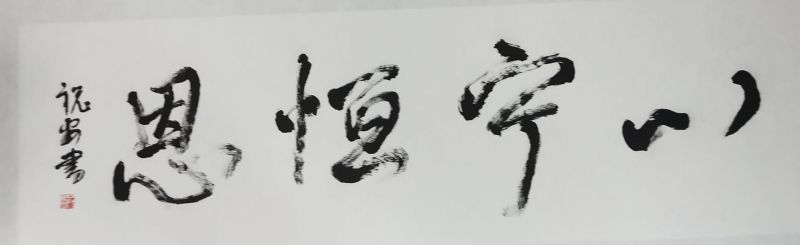 心宁恒恩
祝安书